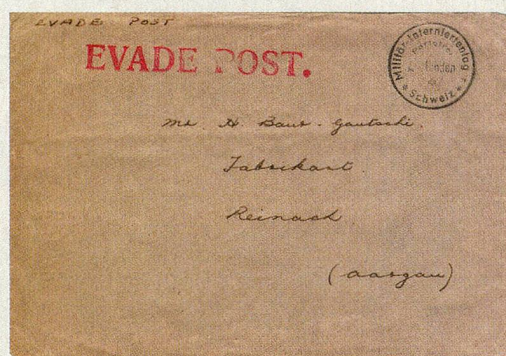 EVADE POST
EVADE POST.
Militär-Internierten
Schweiz
Mr. H Baur-Gautschi.
Fabrikant
Reinach
(Aargau)